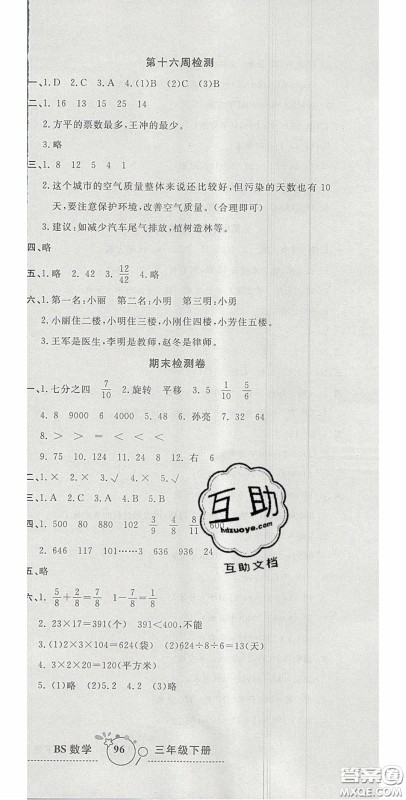 第十六周检测
一、1. D 2. C 3. A 4. (1)B (2)C (3)B
二、1. 16 13 15 25 14
2. 方平的票数最多,王冲的最少。
3. 略
三、1. 8 12 5 4 1
2. 这个城市的空气质量整体来说还比较好,但污染的天数也有 10
天,要注意保护环境,改善空气质量。(合理即可)
3. 建议:如减少汽车尾气排放,植树造林等。
四、略
五、1. 略 2. 42 3. 12/42 4. 略
六、1. 第一名:小丽 第二名:小明 第三名:小勇
2. 小丽住二楼,小明住三楼,小刚住四楼,小芳住五楼。
3. 王军是医生,李明是教师,赵冬是律师。
期末检测卷
一、1. 七分之四 7/10 2. 旋转 平移 3. 5 1
4. 8 9000 4 6000 5. 68 6. 孙亮 7. 32 64
8. > < = <
9. 75 10. 124 11. 24 12. 右 6
二、1. × 2. × 3. √ 4. × 5. √
三、1. 40 900 208 324 3/9 4/8 8/11 0
2. 529 640 111……3 336 1520
四、略
五、略
六、1. 5/8+2/8=7/8 1-7/8=1/8
2. 23×17=391(个) 391<400,不能
3. (1)2×3×104=624(袋) (2)624÷8÷6=13(天)
4. 3×2×20=120(平方米)
5. (1)略 (2)略 (3)略
互助
hdzuoye.com
互助文档
BS 数学 96 三年级下册
答案圈
MXQE.COM